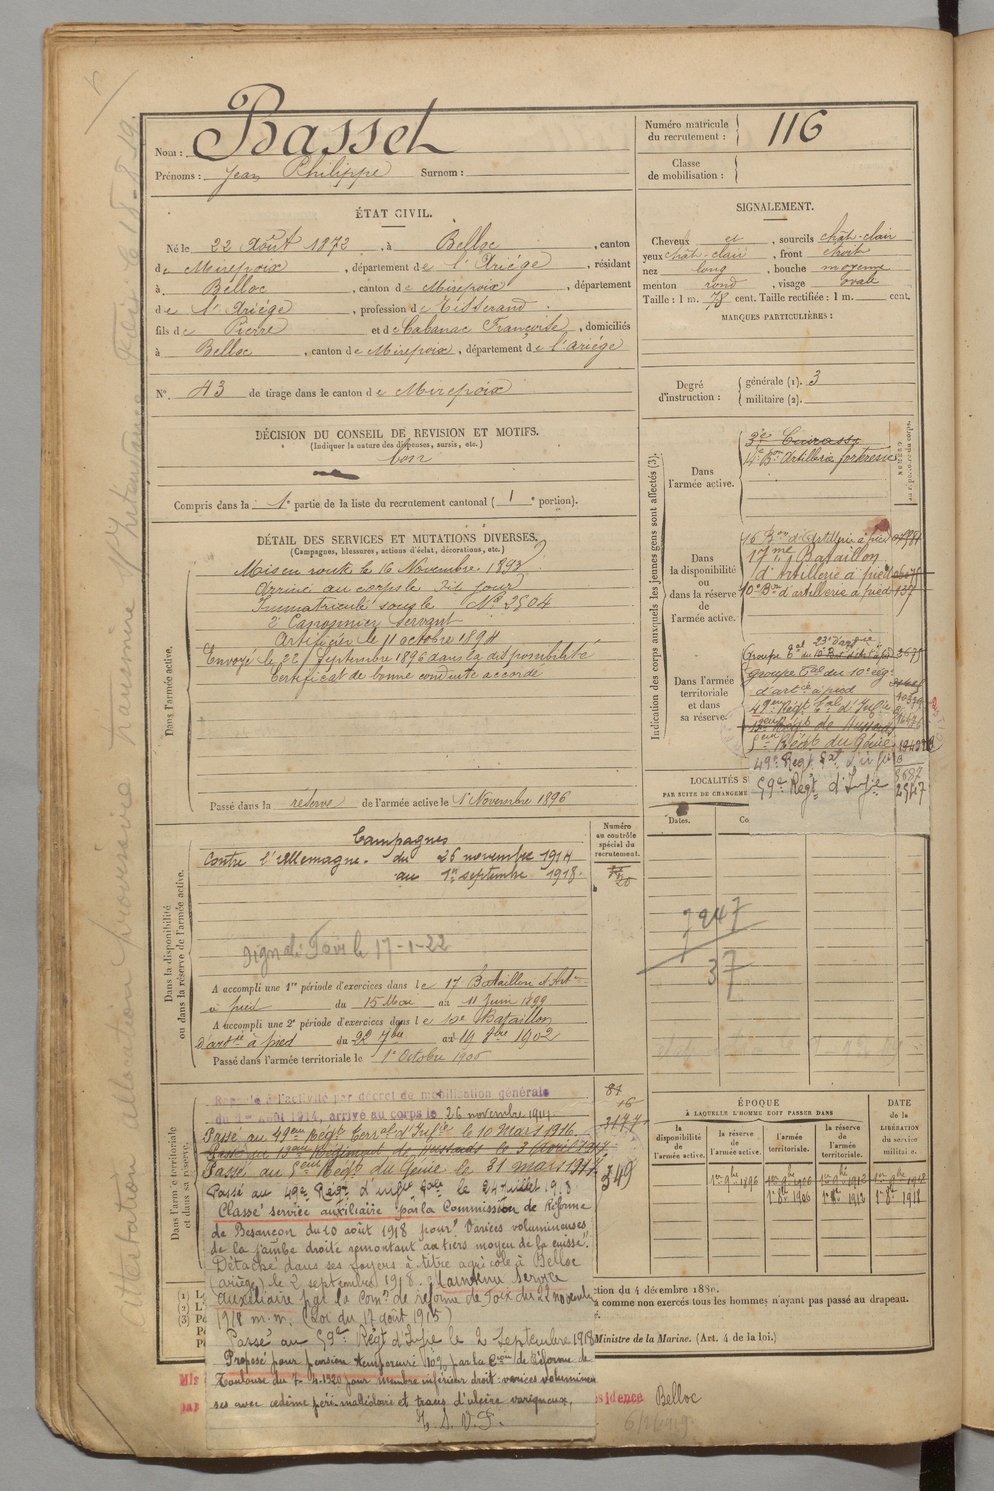 Nom : Basset
Prénoms : Jean Philippe Surnom :
Numéro matricule du recrutement : 116
Classe de mobilisation :
ÉTAT CIVIL.
Né le 22 Août 1872, à Belloc, canton
de Mirepoix, département de l'Ariége, résidant
à Belloc, canton de Mirepoix, département
de l'Ariége, profession de Tisserand
fils de Pierre et de Cabanac Françoise, domiciliés
à Belloc, canton de Mirepoix, département de l'ariége
N° 43 de tirage dans le canton de Mirepoix
SIGNALEMENT.
Cheveux et, sourcils chât-clair
yeux chât-clair, front étroit
nez long, bouche moyenne
menton rond, visage ovale
Taille : 1 m. 78 cent. Taille rectifiée : 1 m. cent.
MARQUES PARTICULIÈRES :
Degré d'instruction : générale (1). 3
militaire (2).
DÉCISION DU CONSEIL DE REVISION ET MOTIFS.
(Indiquer la nature des dispenses, sursis, etc.)
bon
Compris dans la 1e partie de la liste du recrutement cantonal ( 1 e portion).
DÉTAIL DES SERVICES ET MUTATIONS DIVERSES.
(Campagnes, blessures, actions d'éclat, décorations, etc.)
Dans l'armée active.
Mis en route le 16 Novembre 1893
Arrivé au corps le dit jour
Immatriculé sous le N° 2504
2e Canonnier Servant
Artificier le 11 octobre 1894
Envoyé le 22 Septembre 1896 dans la disponibilité
Certificat de bonne conduite accordé
Passé dans la réserve de l'armée active le 1er Novembre 1896
Indication des corps auxquels les jeunes gens sont affectés (3).
Dans l'armée active.
3e Cuirass.
4e Bon Artillerie forteresse
Dans la disponibilité ou dans la réserve de l'armée active.
16 Bon d'Artillerie à pied
17me Bataillon
d'Artillerie à pied
10e Bon d'artillerie à pied 137
Dans l'armée territoriale et dans sa réserve.
Groupe
Groupe tal du 10e rég
d'artie à pied
49eme Régt tal d'Infie
13eme Régt de Hussards
5eme Régt du Génie
49e Régt tal d'infie
59e Régt d'Infie 2547
LOCALITÉS S
PAR SUITE DE CHANGEME
Dates.
Co
7247
37
Dans la disponibilité ou dans la réserve de l'armée active.
Campagnes
Contre l'Allemagne. du 26 novembre 1914
au 1er septembre 1918.
Numéro au contrôle spécial du recrutement.
Signalé Foix le 17-1-22
A accompli une 1re période d'exercices dans le 17 Bataillon d'Art
à pied du 15 Mai au 11 Juin 1899
A accompli une 2e période d'exercices dans le 10e Bataillon
d'artie à pied du 22 7bre au 19 8bre 1902
Passé dans l'armée territoriale le 1er Octobre 1906
Dans l'armée territoriale et dans sa réserve.
Rappelé à l'activité par décret de mobilisation générale
du 1er Août 1914, arrivé au corps le 26 novembre 1914
Passé au 49eme Régt Terral d'Infie le 10 mars 1916
Passé au 13eme Régiment de Hussards le 3 Avril 1917
Passé au 5eme Régt du Génie le 31 mars 1917
349
Passé au 49e Régt d'infie tale le 24 juillet 1918
Classé service auxiliaire par la Commission de Réforme
de Besançon du 10 août 1918 pour "Varices volumineuses
de la jambe droite remontant au tiers moyen de la cuisse".
Détaché dans ses foyers à titre agricole à Belloc
(ariège) le 2 septembre 1918. Maintenu Service
Auxiliaire par la Comon de réforme de Foix du 22 novembre
1918 m.m. (Loi du 17 août 1915)
Passé au 59e Régt d'Infie le 2 septembre 1918
Proposé pour pension temporaire 10% par la Con de Réforme de
Toulouse du 7-4-1920 pour membre inférieur droit : varices volumineu
ses avec œdème péri-malléolaire et traces d'ulcère variqueux.
T. S. V. P.
ÉPOQUE
À LAQUELLE L'HOMME DOIT PASSER DANS
la disponibilité de l'armée active.
la réserve de l'armée active.
l'armée territoriale.
la réserve de l'armée territoriale.
DATE de la LIBÉRATION du service militaire.
1er 9bre 1896
1er 9bre 1906
1er 9bre 1912
1er 8bre 1906
1er 8bre 1912
1er 8bre 1918
ction du 4 décembre 1889.
à comme non exercés tous les hommes n'ayant pas passé au drapeau.
Ministre de la Marine. (Art. 4 de la loi.)
Mis
par
sidence Belloc